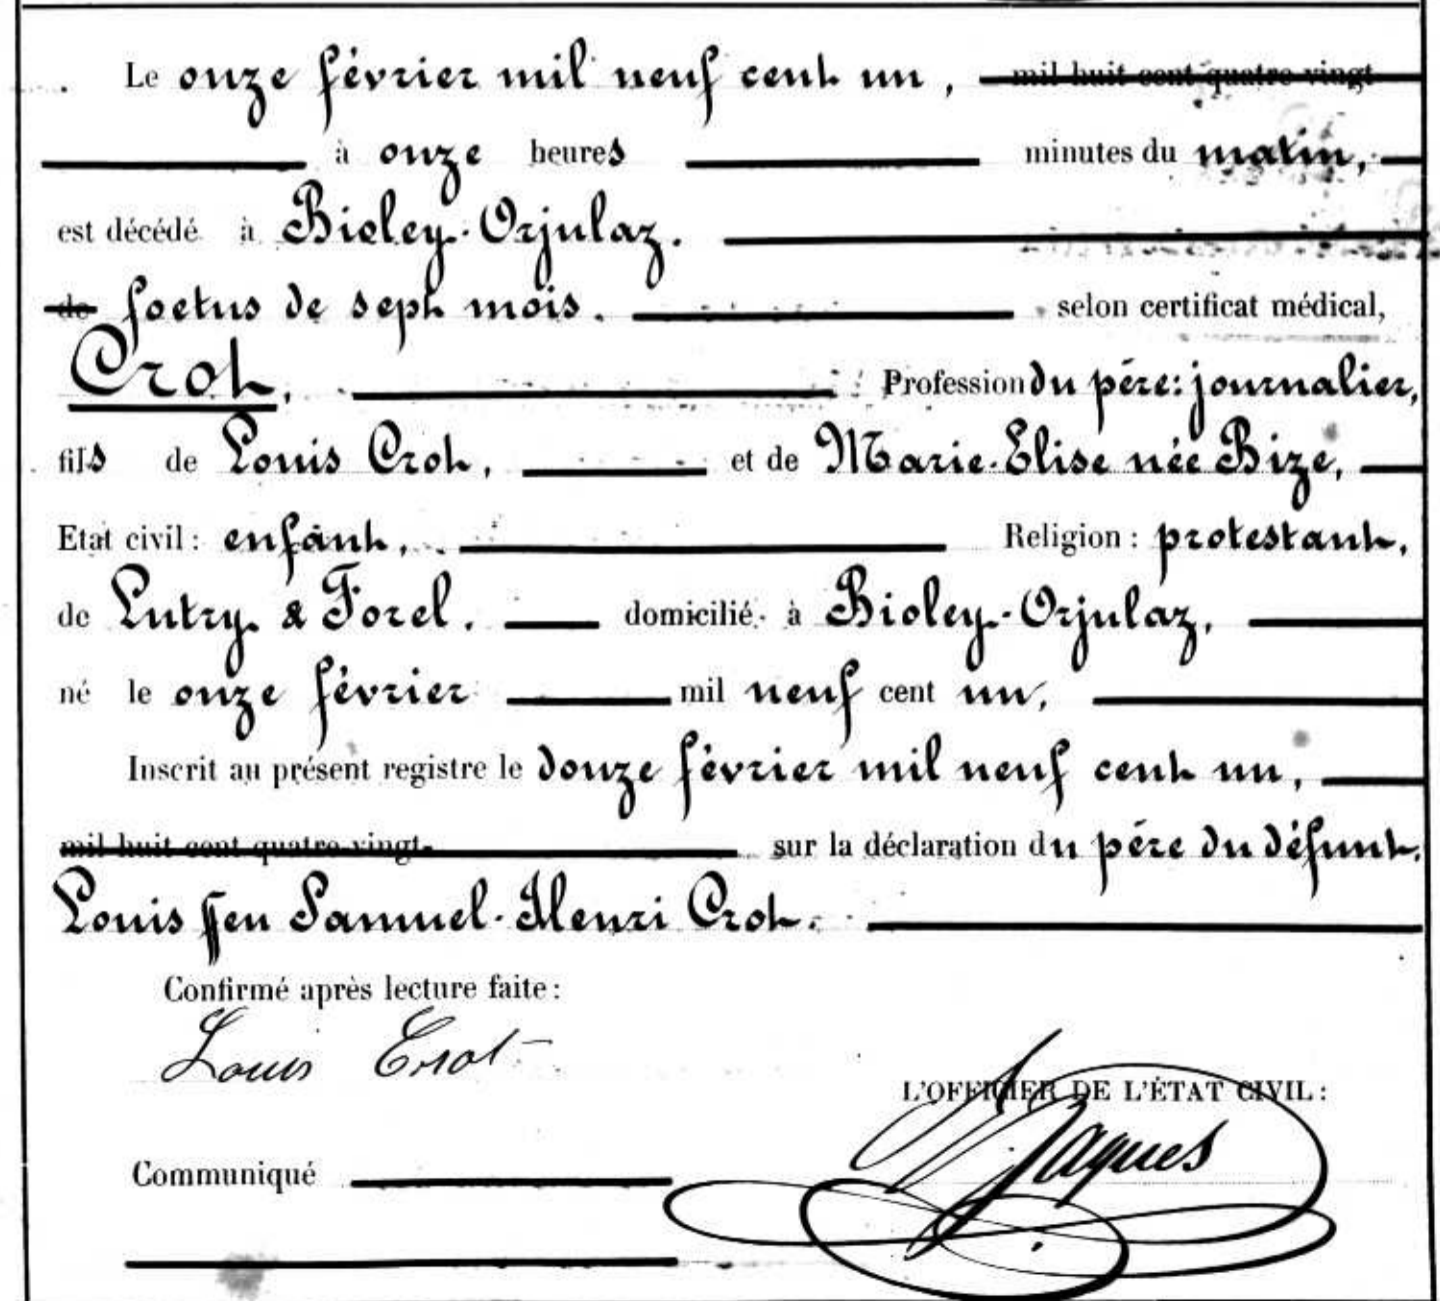 Le onze février mil neuf cent un, mil huit cent quatre-vingt
à onze heures minutes du matin,
est décédé à Bioley-Orjulaz.
de foetus de sept mois. selon certificat médical,
Crot, Profession du père: journalier,
fils de Louis Crot, et de Marie-Elise née Bize,
Etat civil: enfant, Religion: protestant,
de Lutry & Forel. domicilié à Bioley-Orjulaz,
né le onze février mil neuf cent un,
Inscrit au présent registre le douze février mil neuf cent un,
mil huit cent quatre-vingt- sur la déclaration du père du défunt.
Louis ffeu Samuel-Henri Crot.
Confirmé après lecture faite:
Louis Crot
L'OFFICIER DE L'ÉTAT CIVIL:
Jaques
Communiqué